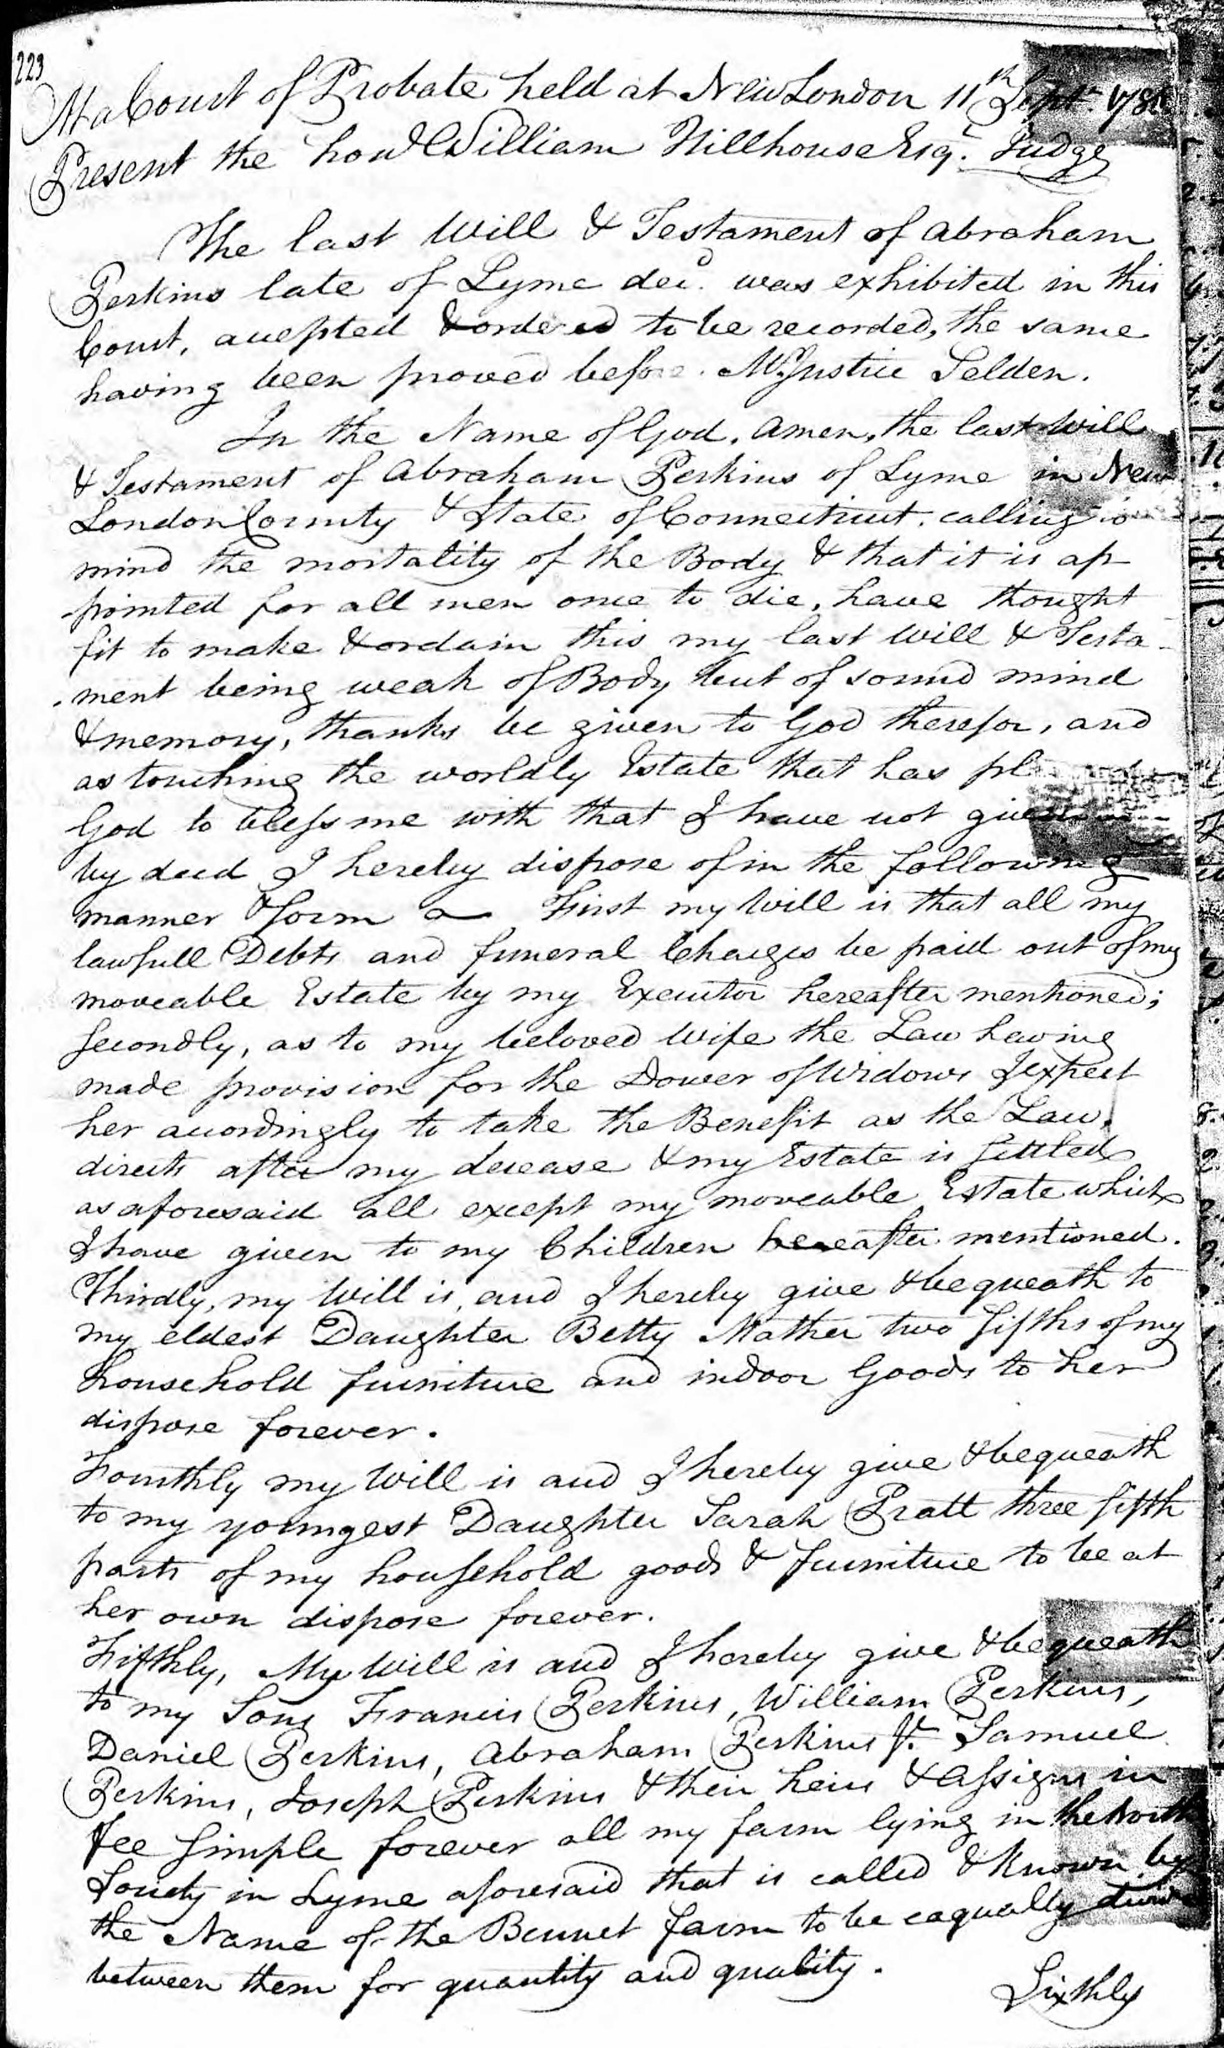 223
At a Court of Probate held at New London 11th Septr. 178
Present the hond William Hillhouse Esqr. Judge
The last Will & Testament of Abraham
Perkins late of Lyme decd. was exhibited in this
Court, accepted & ordered to be recorded, the same
having been proved before Mr. Justice Selden.
In the Name of God, Amen, the last Will
& Testament of Abraham Perkins of Lyme in New
London County & State of Connecticut, calling to
mind the mortality of the Body & that it is ap
pointed for all men once to die, have thought
fit to make & ordain this my last Will & Testa-
ment being weak of Body but of sound mind
& memory, thanks be given to God therefor, and
as touching the worldly Estate that has
God to bless me with that I have not given
by deed I hereby dispose of in the following
manner & form First my Will is that all my
lawfull Debts and funeral Charges be paid out of my
moveable Estate by my Executor hereafter mentioned;
Secondly, as to my beloved Wife the Law having
made provision for the Dower of Widows I expect
her accordingly to take the Benefit as the Law
directs after my decease & my Estate is settled
as aforesaid all except my moveable Estate which
I have given to my Children hereafter mentioned.
Thirdly, my Will is, and I hereby give & bequeath to
my eldest Daughter Betty Mather two fifths of my
household furniture and indoor Goods to her
dispose forever.
Fourthly my Will is and I hereby give & bequeath
to my youngest Daughter Sarah Pratt three fifth
parts of my household goods & furniture to be at
her own dispose forever.
Fifthly, My Will is and I hereby give & bequeath
to my Sons Francis Perkins, William Perkins,
Daniel Perkins, Abraham Perkins Jr. Samuel
Perkins, Joseph Perkins & their heirs & Assigns in
fee simple forever all my farm lying in the North
Society in Lyme aforesaid that is called & known by
the Name of the Bennet farm to be eaqually
between them for quantity and quality.
Sixthly